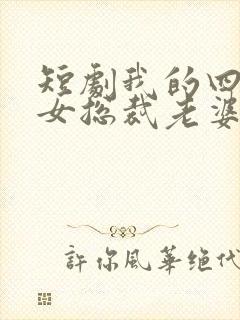 短劇我的四
女总裁老婆
許你风華绝代